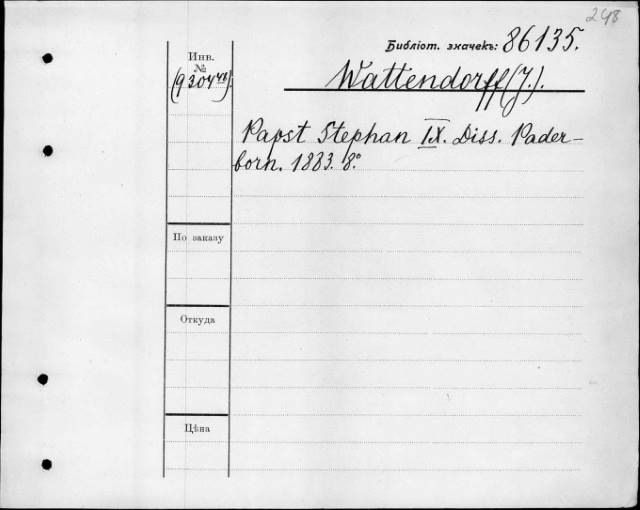 248
Библіот. значекъ: 86135.
Инв.
№
(9304⁴⁸).
Wattendorff (J.).
Papst Stephan IX. Diss. Pader-
born. 1883. 8.°
По заказу
Откуда
Цѣна